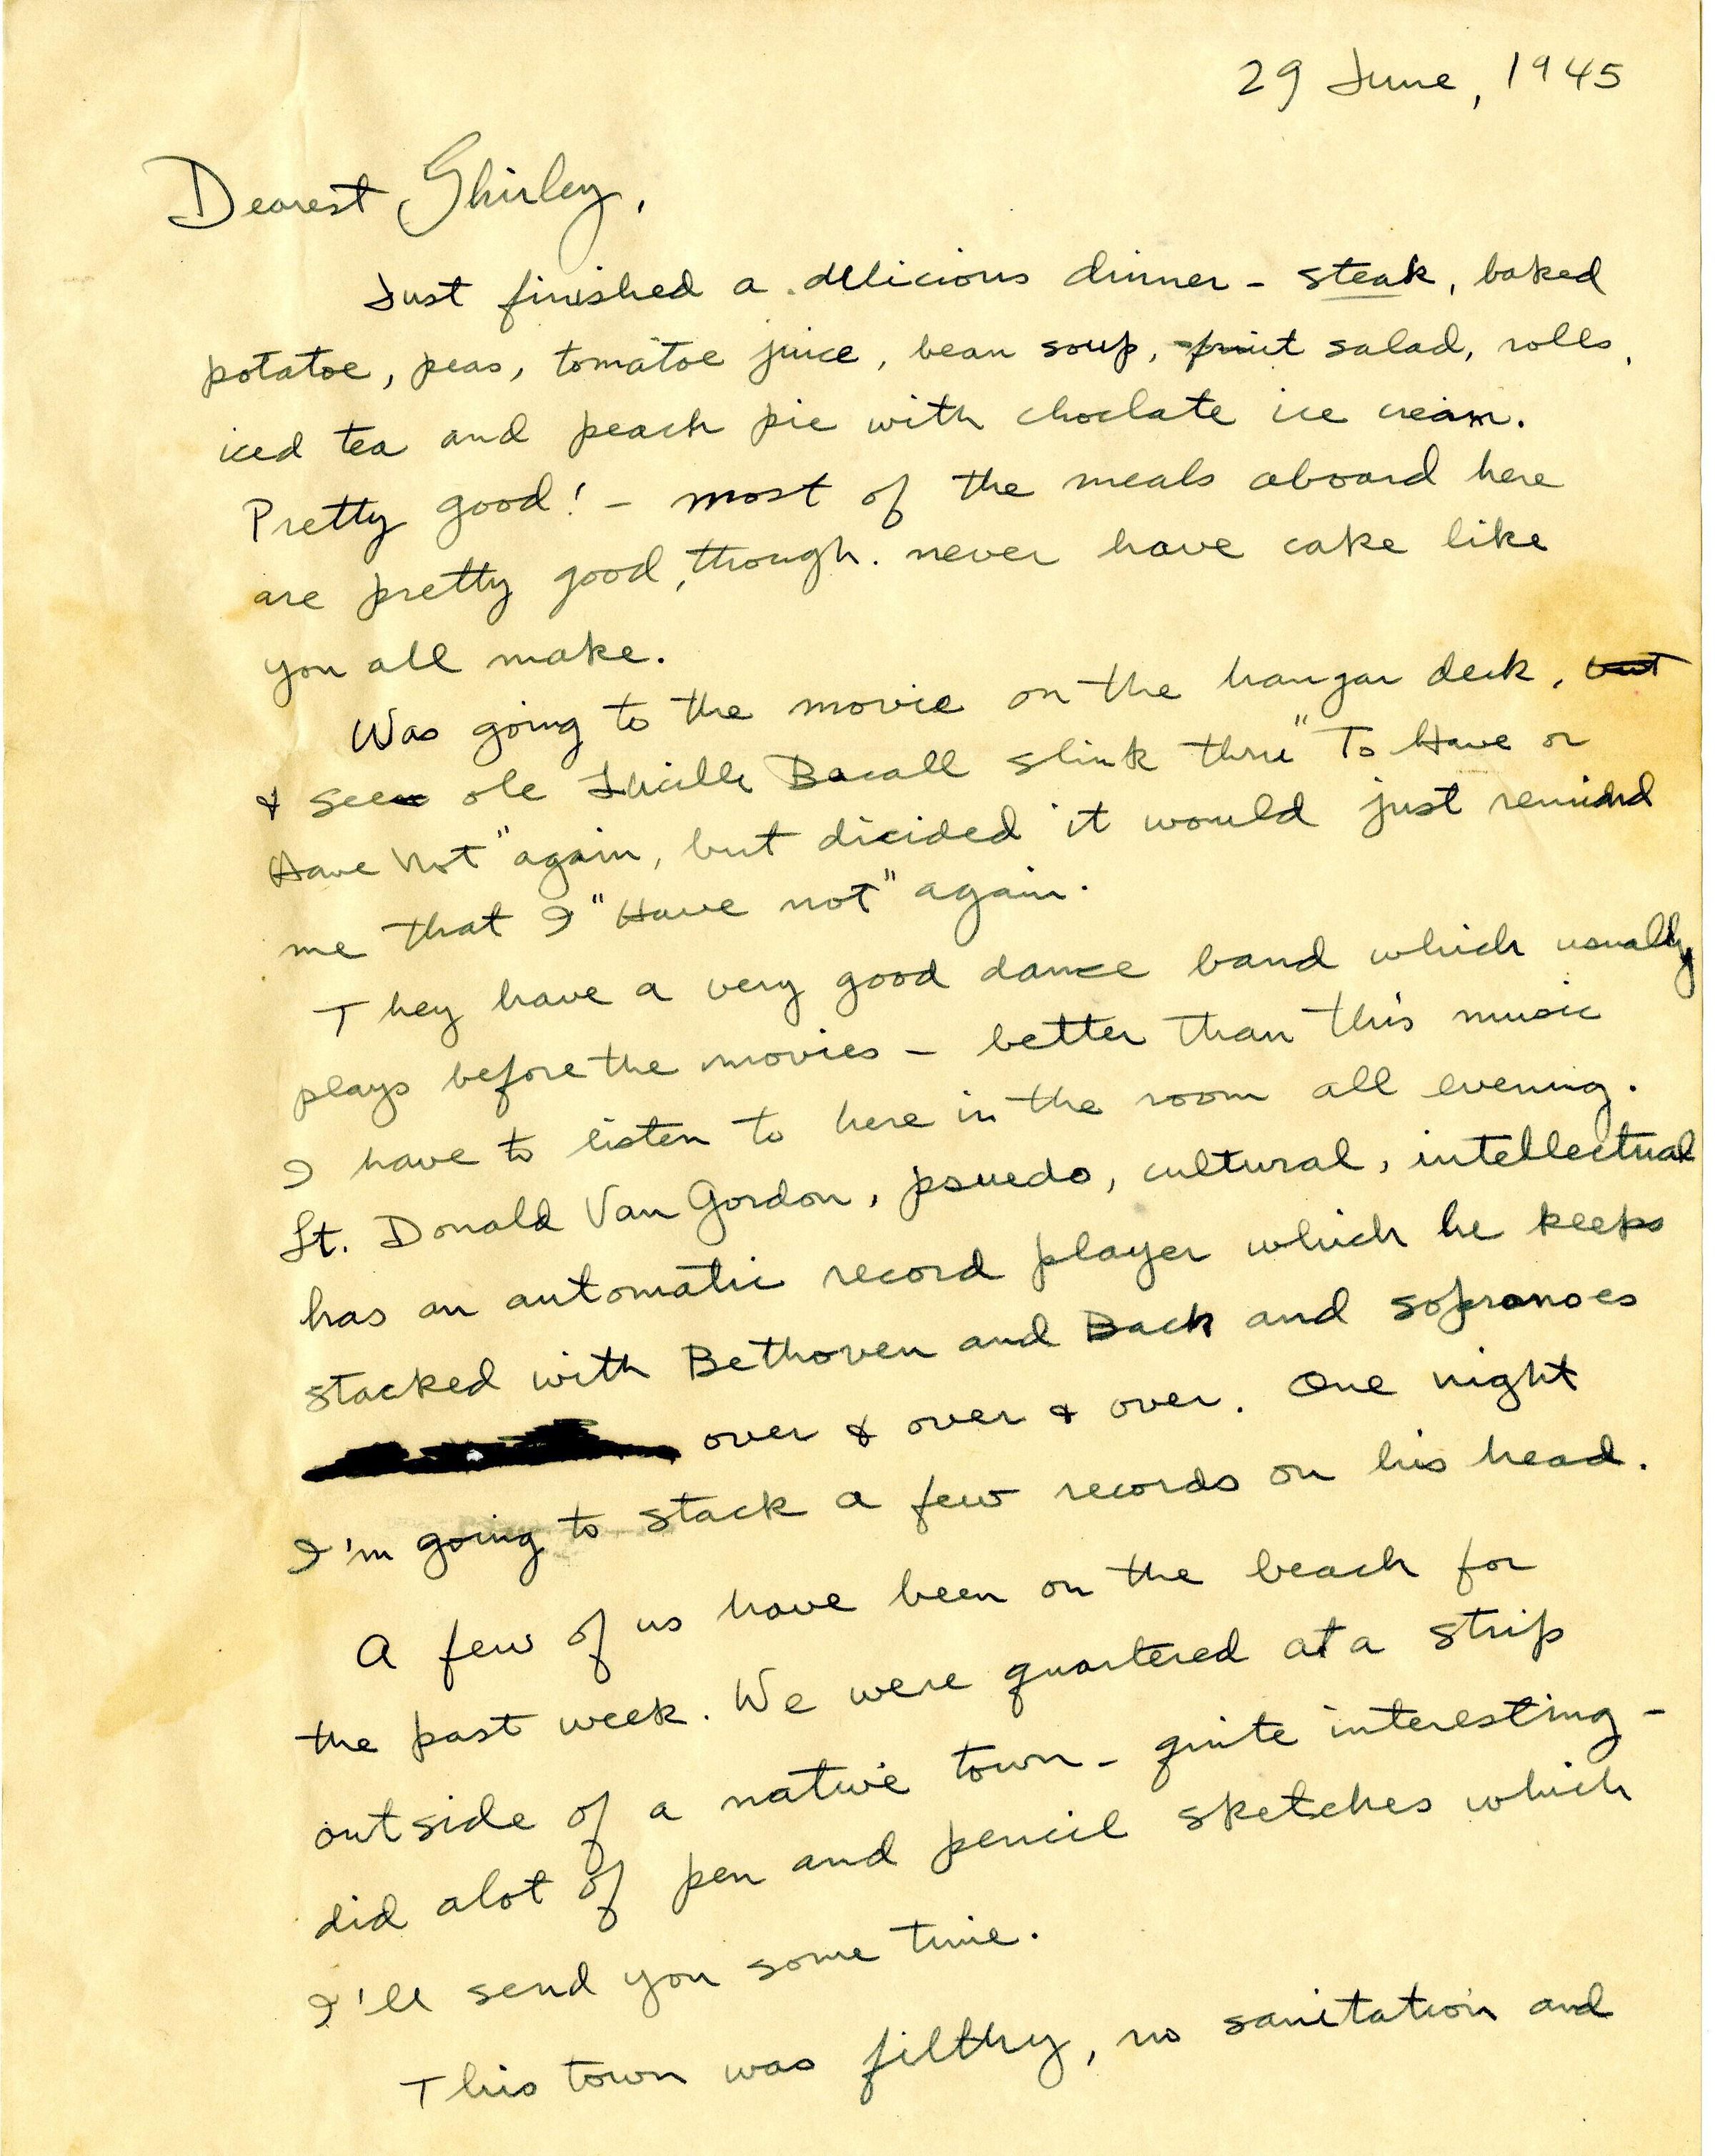 29 June, 1945
Dearest Shirley,
Just finished a delicious dinner - steak, baked
potatoe, peas, tomatoe juice, bean soup, fruit salad, rolls,
iced tea and peach pie with choclate ice cream.
Pretty good! - most of the meals aboard here
are pretty good, though. never have cake like
you all make.
Was going to the movie on the hangar deck, but
& see ole Lucille Bacall slink thru "To Have or
Have Not" again, but dicided it would just remind
me that I "Have not" again.
They have a very good dance band which usually
plays before the movies - better than this music
I have to listen to here in the room all evening.
Lt. Donald Van Gordon, psuedo, cultural, intellectual
has an automatic record player which he keeps
stacked with Bethoven and Back and sopranoes
over & over & over. One night
I'm going to stack a few records on his head.
A few of us have been on the beach for
the past week. We were quartered at a strip
outside of a native town - quite interesting -
did alot of pen and pencil sketches which
I'll send you some time.
This town was filthy, no sanitation and